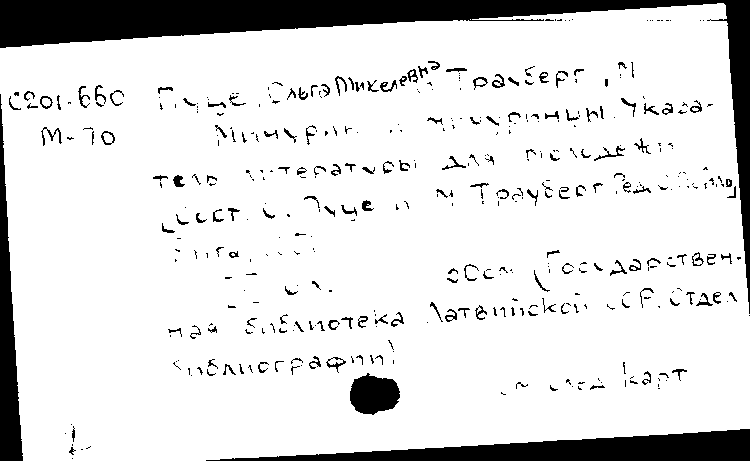 С201-660 Пуце, Ольга Микелевна и Трауберг, М
М-70 Мичурин и мичуринцы. Указа-
тель литературы для молодежи
[Сост. О. Пуце и М Трауберг Ред.
Рига,
20см (Государствен-
ная библиотека Латвийской ССР. Отдел
библиографии)
см след карт